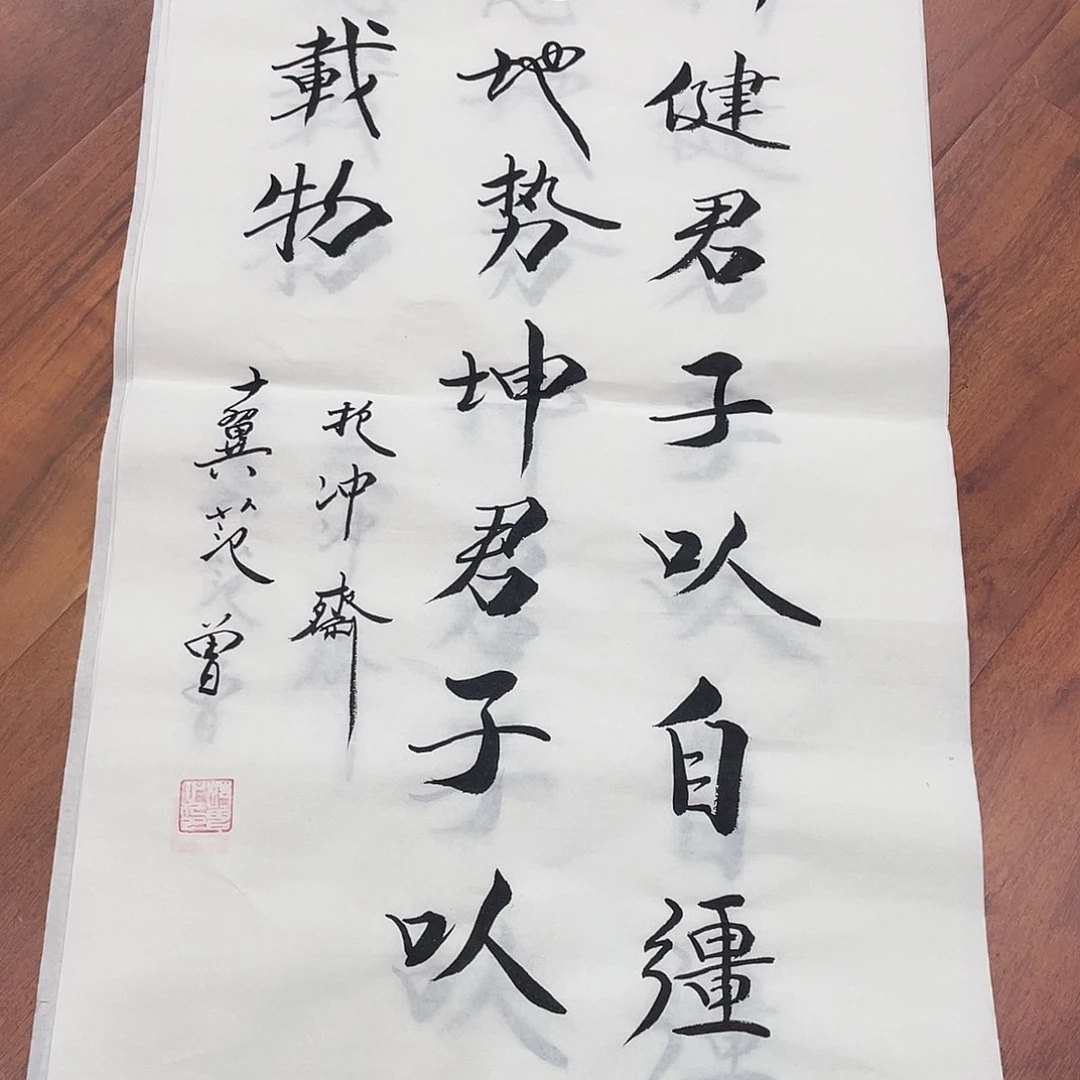 健君子以自彊
地势坤君子以
載物
抱冲齋
十翼范曾